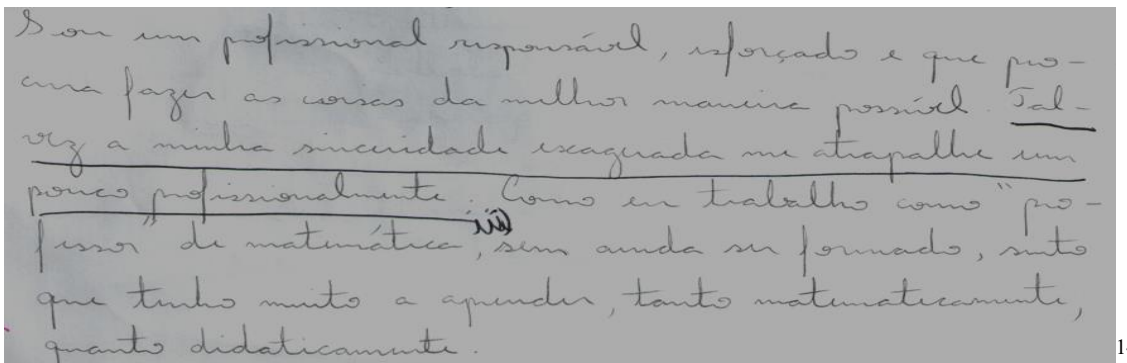 Sou um profissional responsável, esforçado e que pro-
cura fazer as coisas da melhor maneira possível. Tal-
vez a minha sinceridade exagerada me atrapalhe um
pouco profissionalmente. Como eu trabalho como "pro-
fessor" de matemática, sem ainda ser formado, sinto
que tenho muito a aprender, tanto matematicamente,
quanto didaticamente.